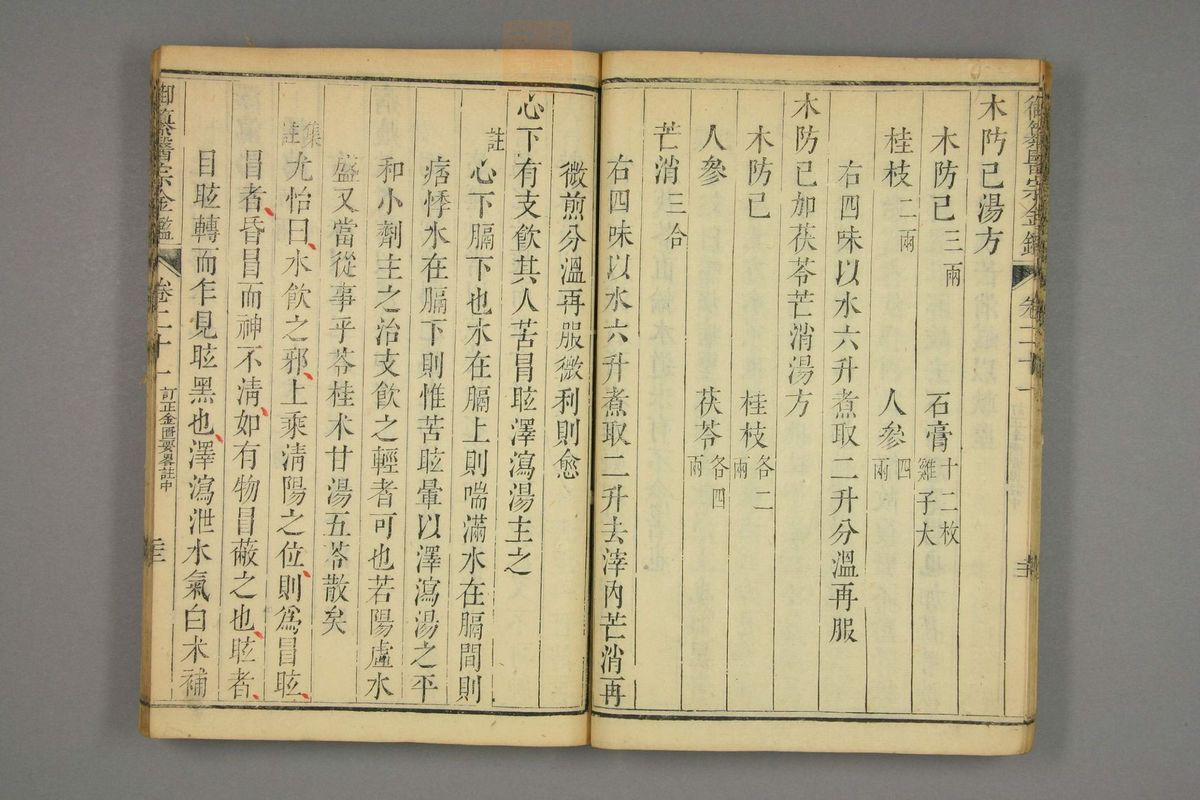 木防已湯方
木防已三兩 石膏十二枚雞子大
桂枝二兩 人參四兩
右四味以水六升煮取二升分溫再服
木防已加茯苓芒消湯方
木防已 桂枝各二兩
人參 茯苓各四兩
芒消三合
右四味以水六升煮取二升去滓內芒消再
微煎分溫再服微利則愈
心下有支飲其人苦冒眩澤瀉湯主之
註心下膈下也水在膈上則喘滿水在膈間則
痞悸水在膈下則惟苦眩暈以澤瀉湯之平
和小劑主之治支飲之輕者可也若陽虛水
盛又當從事乎苓桂术甘湯五苓散矣
集註尤怡曰水飲之邪上乘淸陽之位則為冒眩
冒者昏冒而神不淸如有物冒蔽之也眩者
目眩轉而乍見眩黑也澤瀉泄水氣白术補
御纂醫宗金鑑 卷二十一 訂正金匱要畧註中